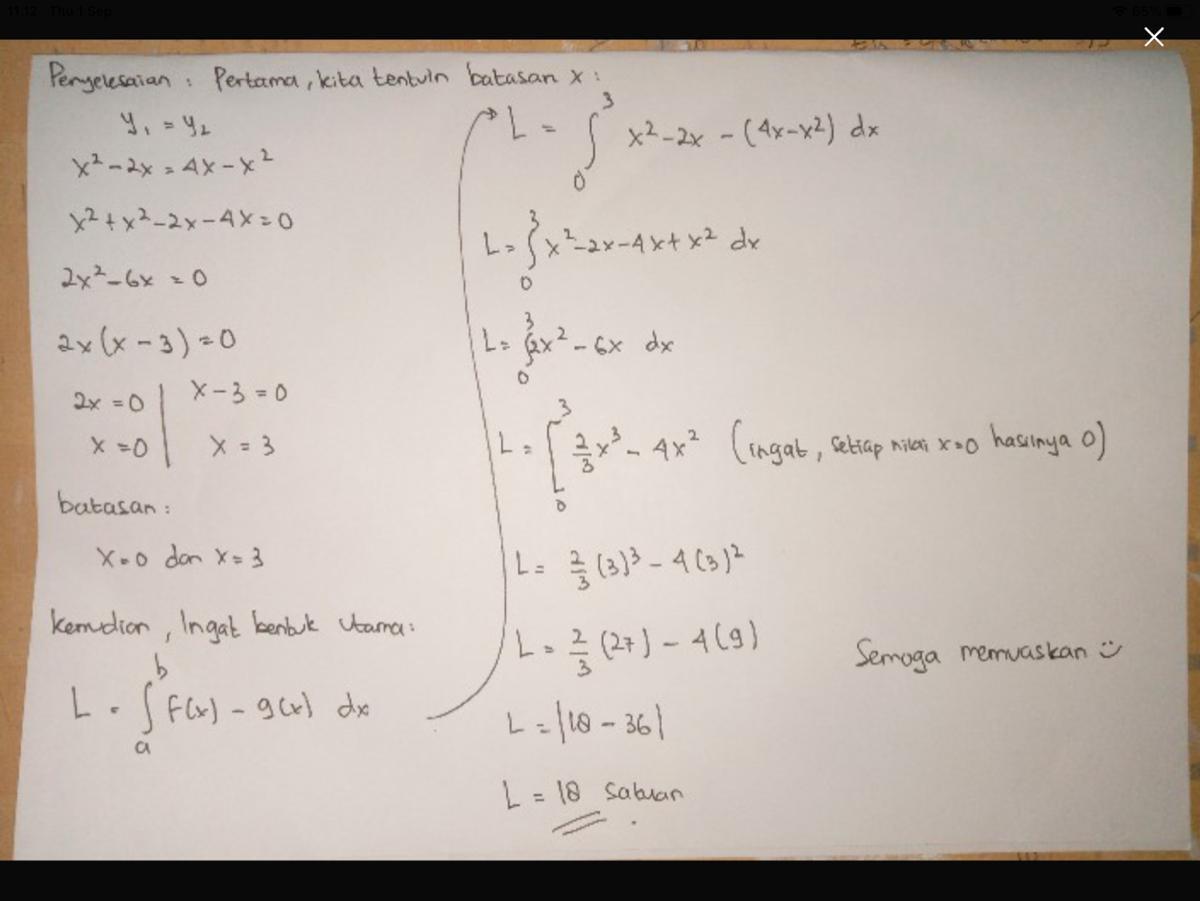 11.12 Thu 1 Sep
65%
Penyelesaian : Pertama, kita tentuin batasan x :
y₁ = y₂
x² - 2x = 4x - x²
x² + x² - 2x - 4x = 0
2x² - 6x = 0
2x (x - 3) = 0
2x = 0 | x - 3 = 0
x = 0 | x = 3
batasan :
x = 0 dan x = 3
kemudian, Ingat bentuk utama :
L = ∫ₐᵇ f(x) - g(x) dx
L = ∫₀³ x² - 2x - (4x - x²) dx
L = ∫₀³ x² - 2x - 4x + x² dx
L = ∫₀³ 2x² - 6x dx
L = [₀³ 2/3 x³ - 4x² (ingat, setiap nilai x=0 hasilnya 0)
L = 2/3 (3)³ - 4(3)²
L = 2/3 (27) - 4(9)
L = |18 - 36|
L = 18 Satuan
Semoga memuaskan